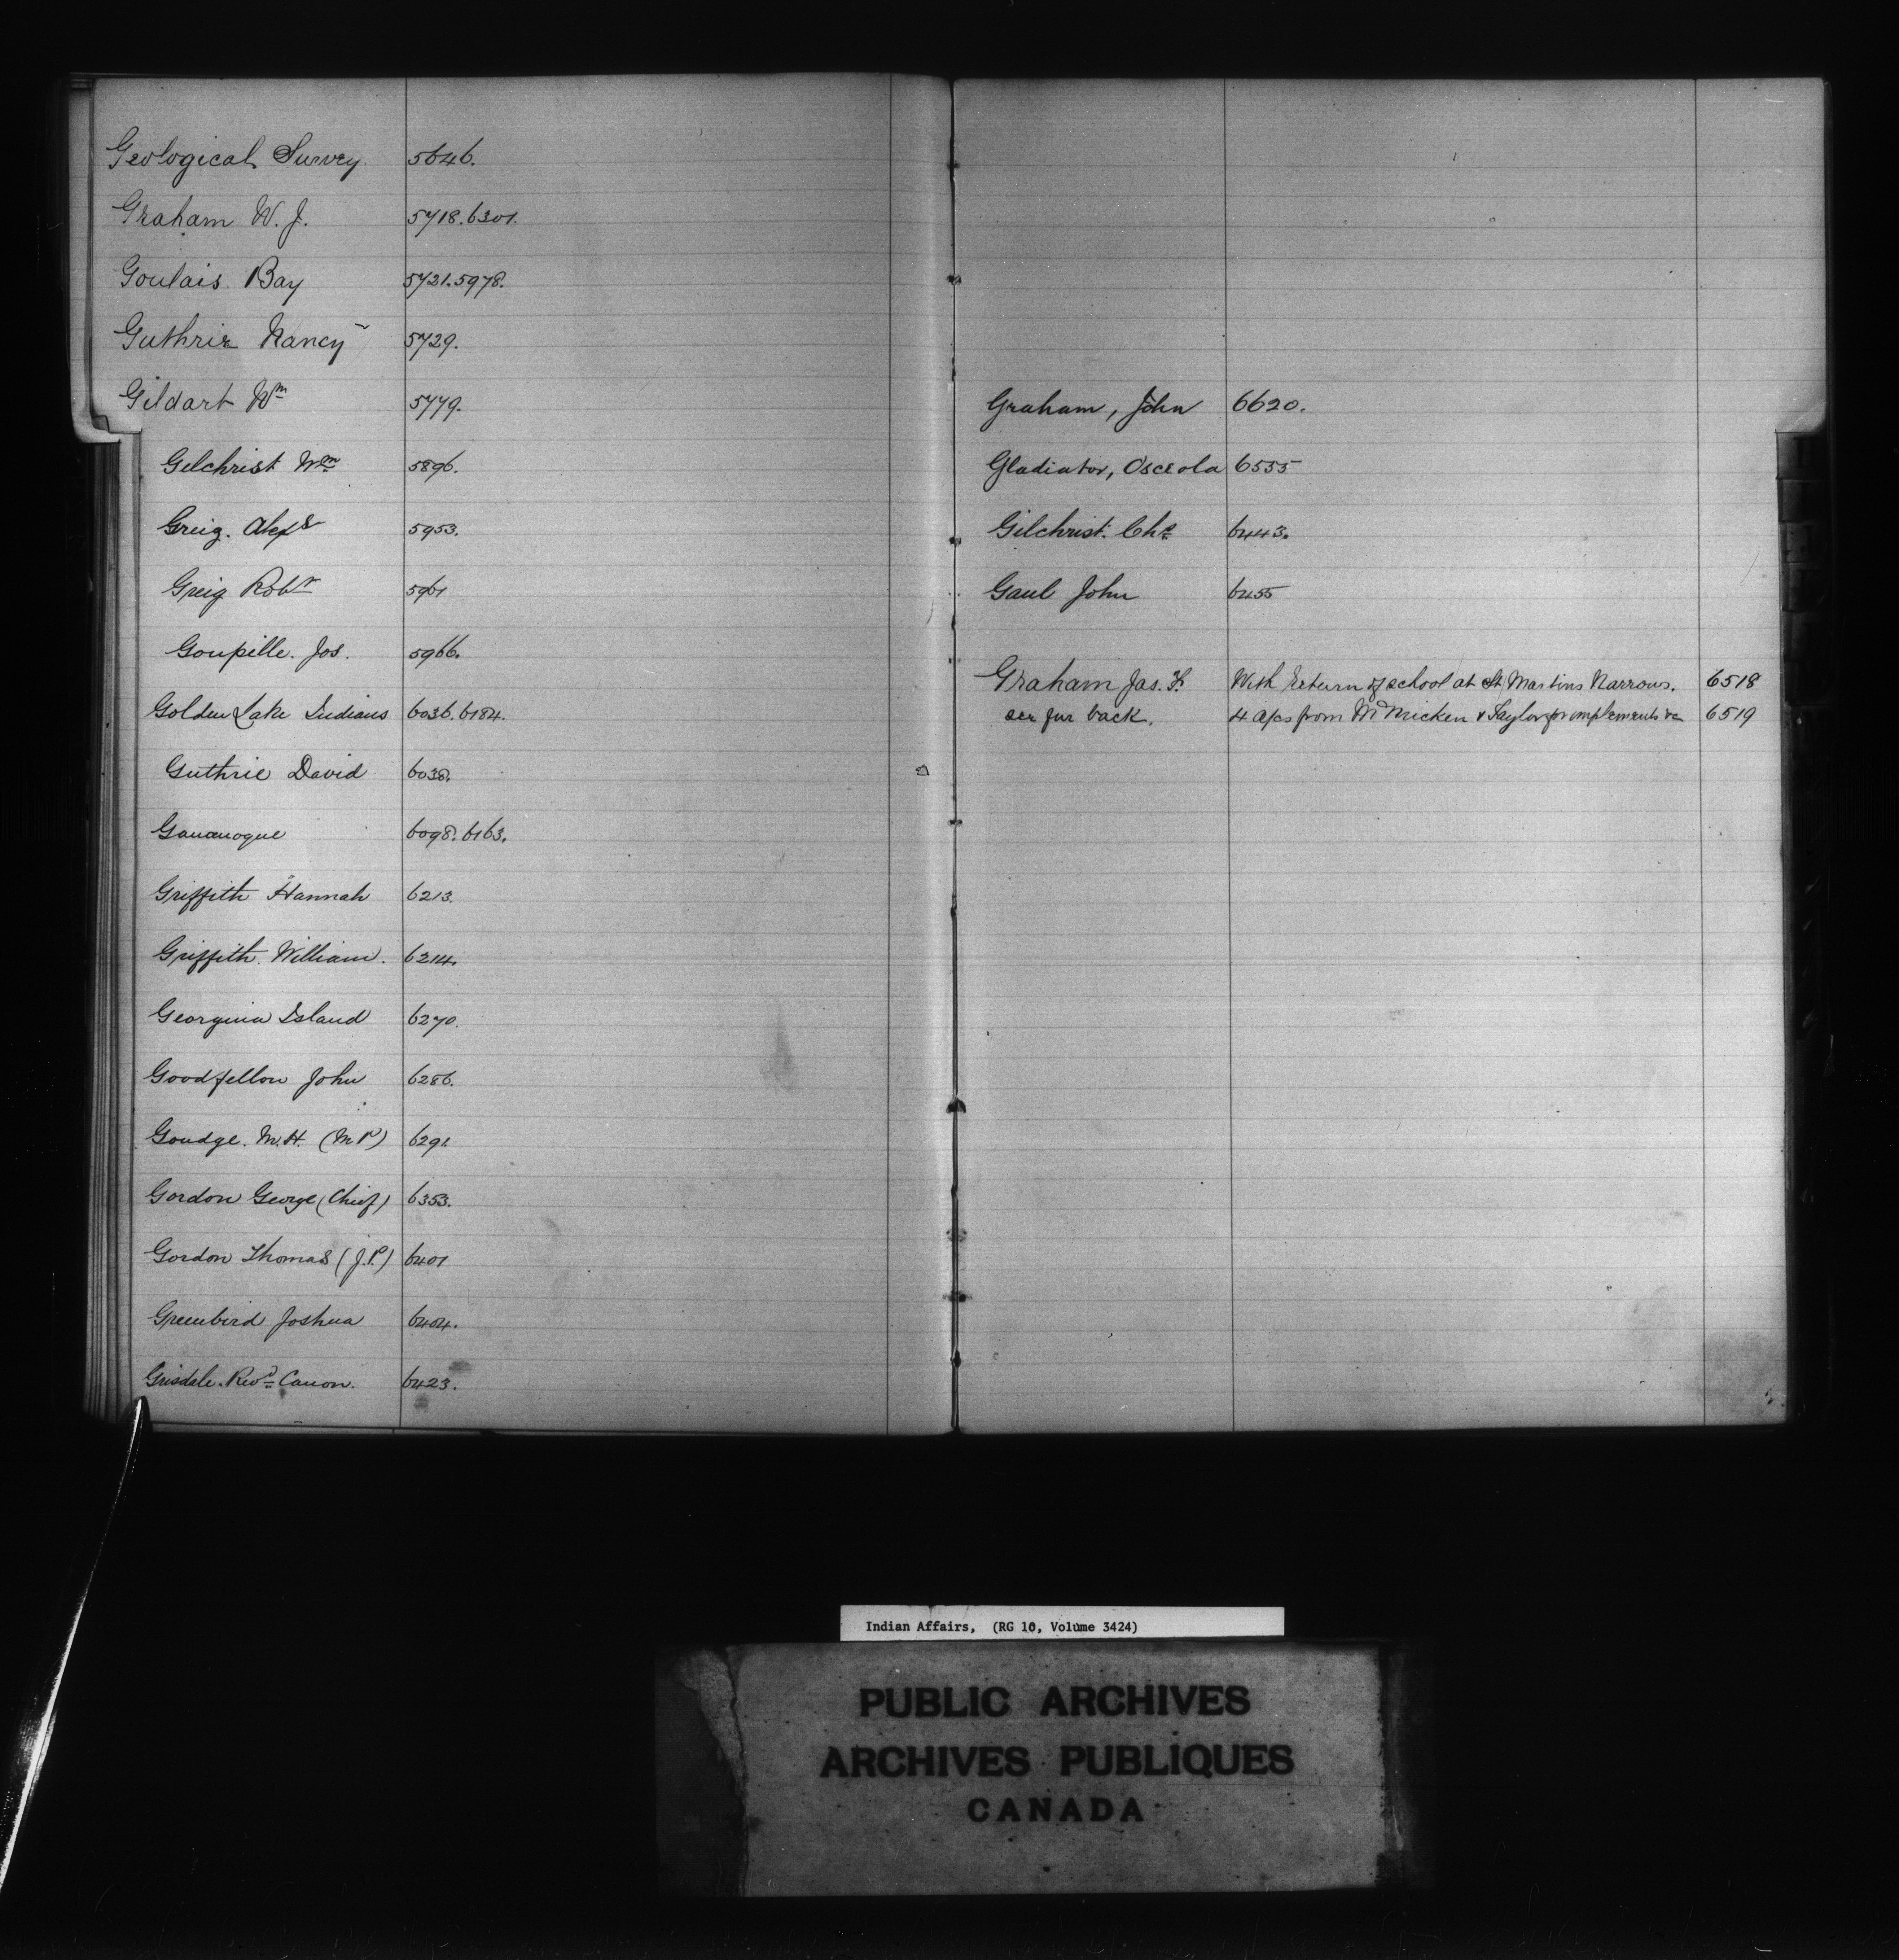 Geological Survey. 5646.
Graham W. J. 5718. 6301.
Goulais Bay 5721. 5978.
Guthrie Nancy 5729.
Gildart Wm 5779.
Gilchrist Wm 5896.
Greig. Alexr 5953.
Greig Robt 5961
Goupille. Jos. 5966.
Golden Lake Indians 6036. 6184.
Guthrie David 6038.
Gananoque 6098. 6163.
Griffith Hannah 6213.
Griffith. William. 6214.
Georgina Island 6270.
Goodfellow John 6286.
Goudge. M. H. (M P) 6291.
Gordon George (Chief) 6353.
Gordon Thomas (J. P.) 6401
Greenbird Joshua 6404.
Grisdale. Revd Canon. 6423.
Graham, John 6620.
Gladiator, Osceola 6555
Gilchrist. Chs 6443.
Gaul John 6455
Graham Jas. F. With Return of school at St Martins Narrows. 6518
see fur back. 4 a/cs from McMicken & Taylor for implements &c 6519
Indian Affairs, (RG 10, Volume 3424)
PUBLIC ARCHIVES
ARCHIVES PUBLIQUES
CANADA